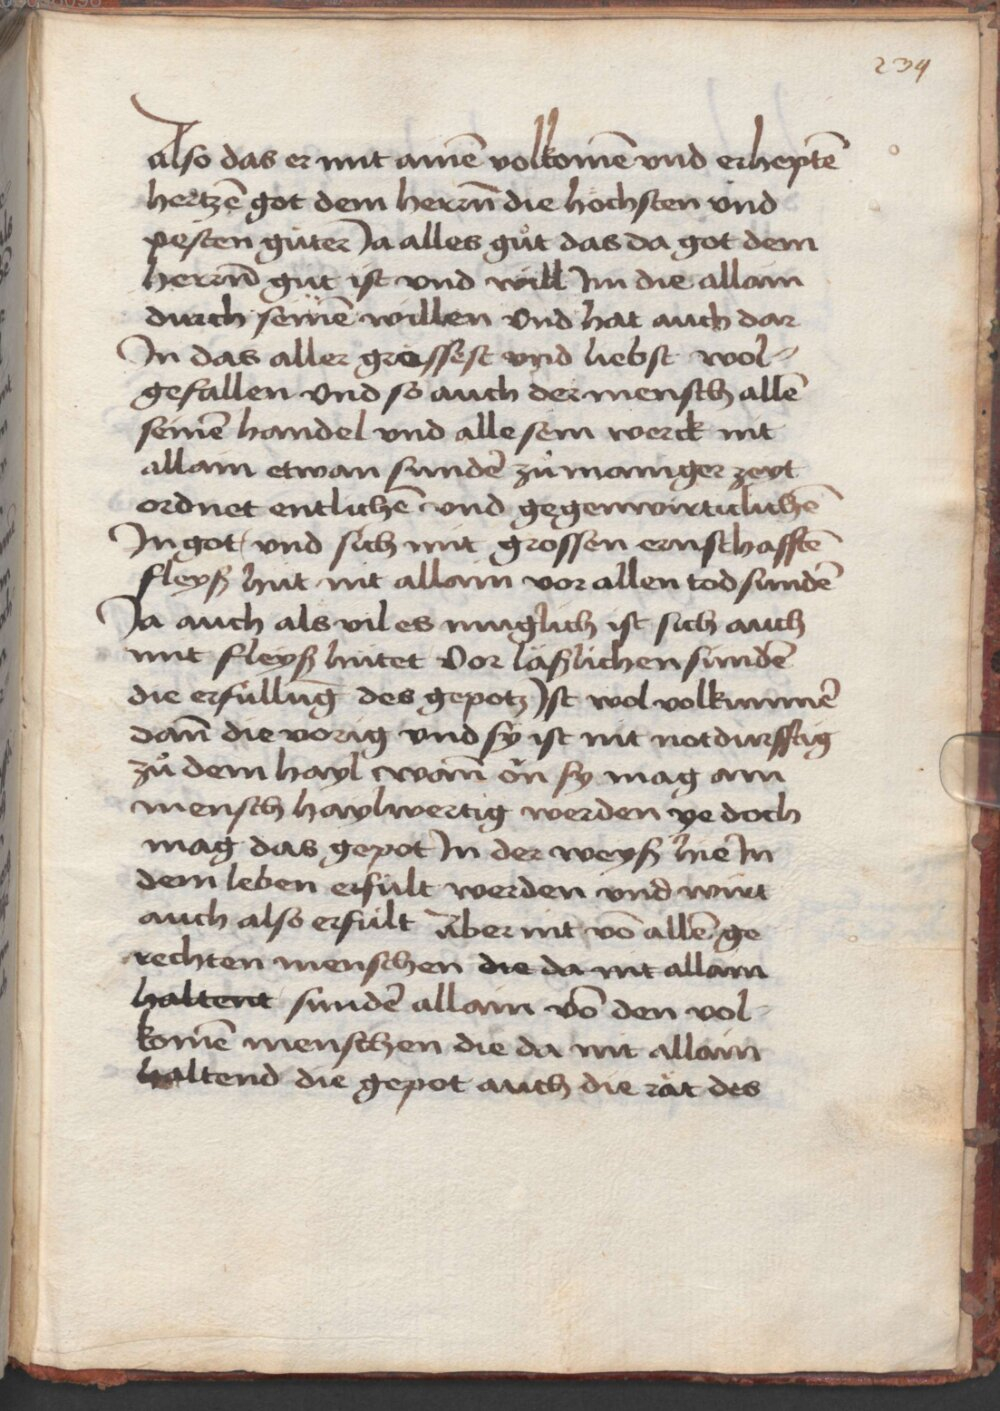 234
Also das er mit ainē volkomē vnd erheptē
hertzē got dem herrn̄ die höchsten vnd
pesten güter Ja alles gůt das da got dem
herrn̄ gut ist vnd will Im die allain
durch seinē willen Vnd hat auch dar
In das aller grössest vnd liebst wol-
gefallen Vnd so auch der mensch allē
seinē handel vnd alle sein werck nit
allain etwan sundē zů maniger zeyt
ordnet entlichē vnd gegenwirticlichē
In got vnd sich mit grossen ernsthafftē
fleyß hüt nit allain vor allen tod sundē
Ja auch als vil es muglich ist sich auch
mit fleyß hütet Vor läßlichen sündē
die erfüllūg des gepotz Ist wol volkummē
dan̄ die vorig vnd sy ist nit notdurfftig
zů dem hayl wan̄ ön sy mag ain
mensch haylwertig werden ye doch
mag das gepot In der weyß hie In
dem leben erfült werden vnd wirt
auch also erfült Aber nit vō allē ge
rechten menschen die da nit allain
haltent sundē allain vō den vol-
komē menschen die da nit allain
haltend die gepot auch die rät des